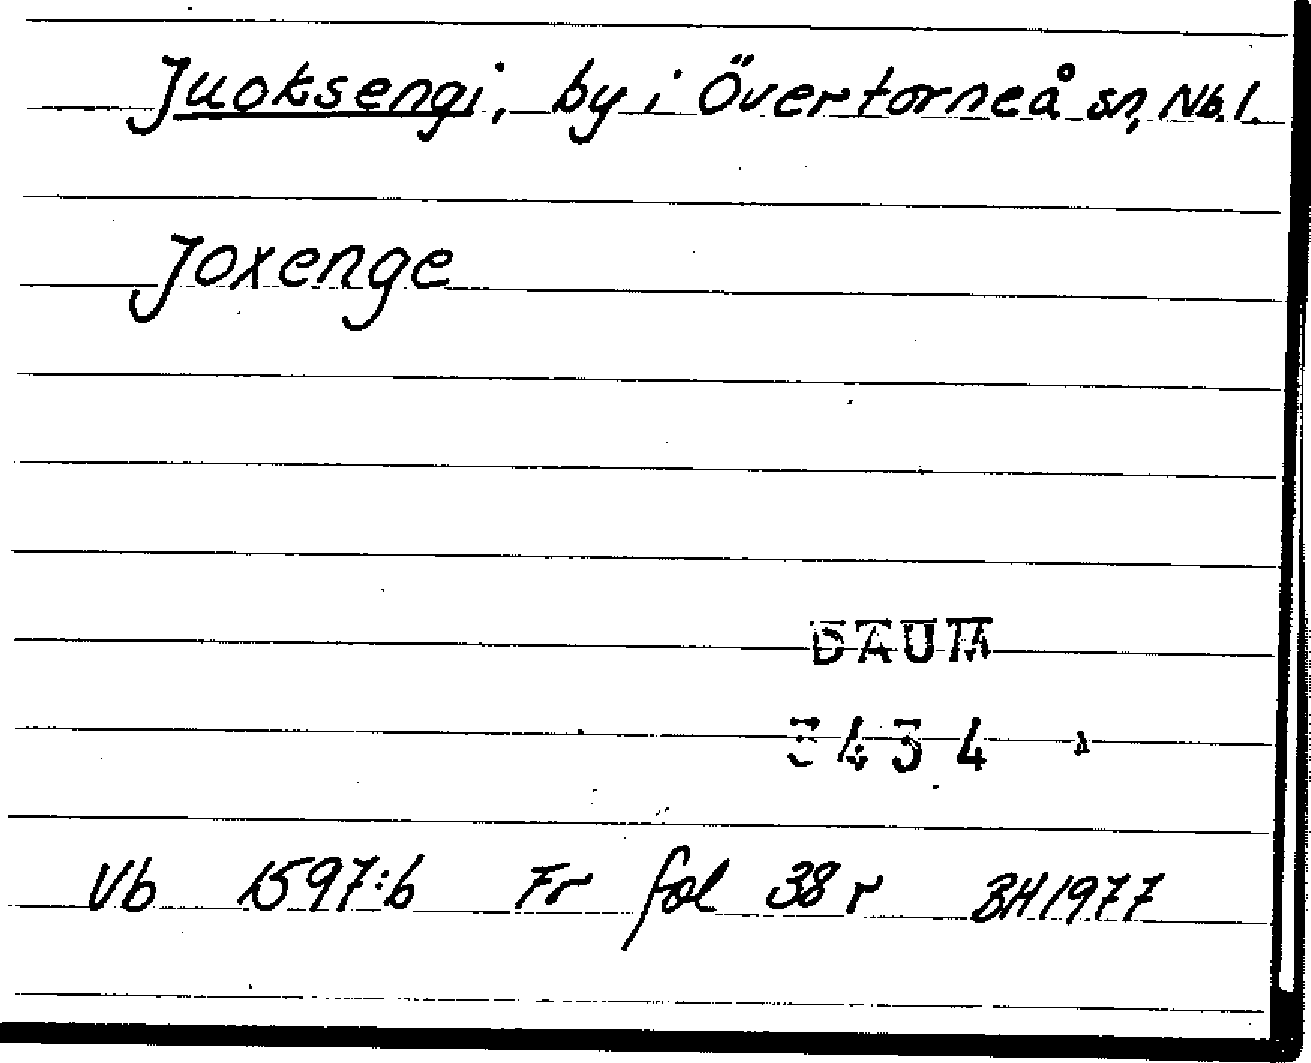 Juoksengi, by i Övertorneå sn, Nb. l.
Joxenge
DAUM
3434
Vb 1597:6 Fr fol 38 r BH 1977